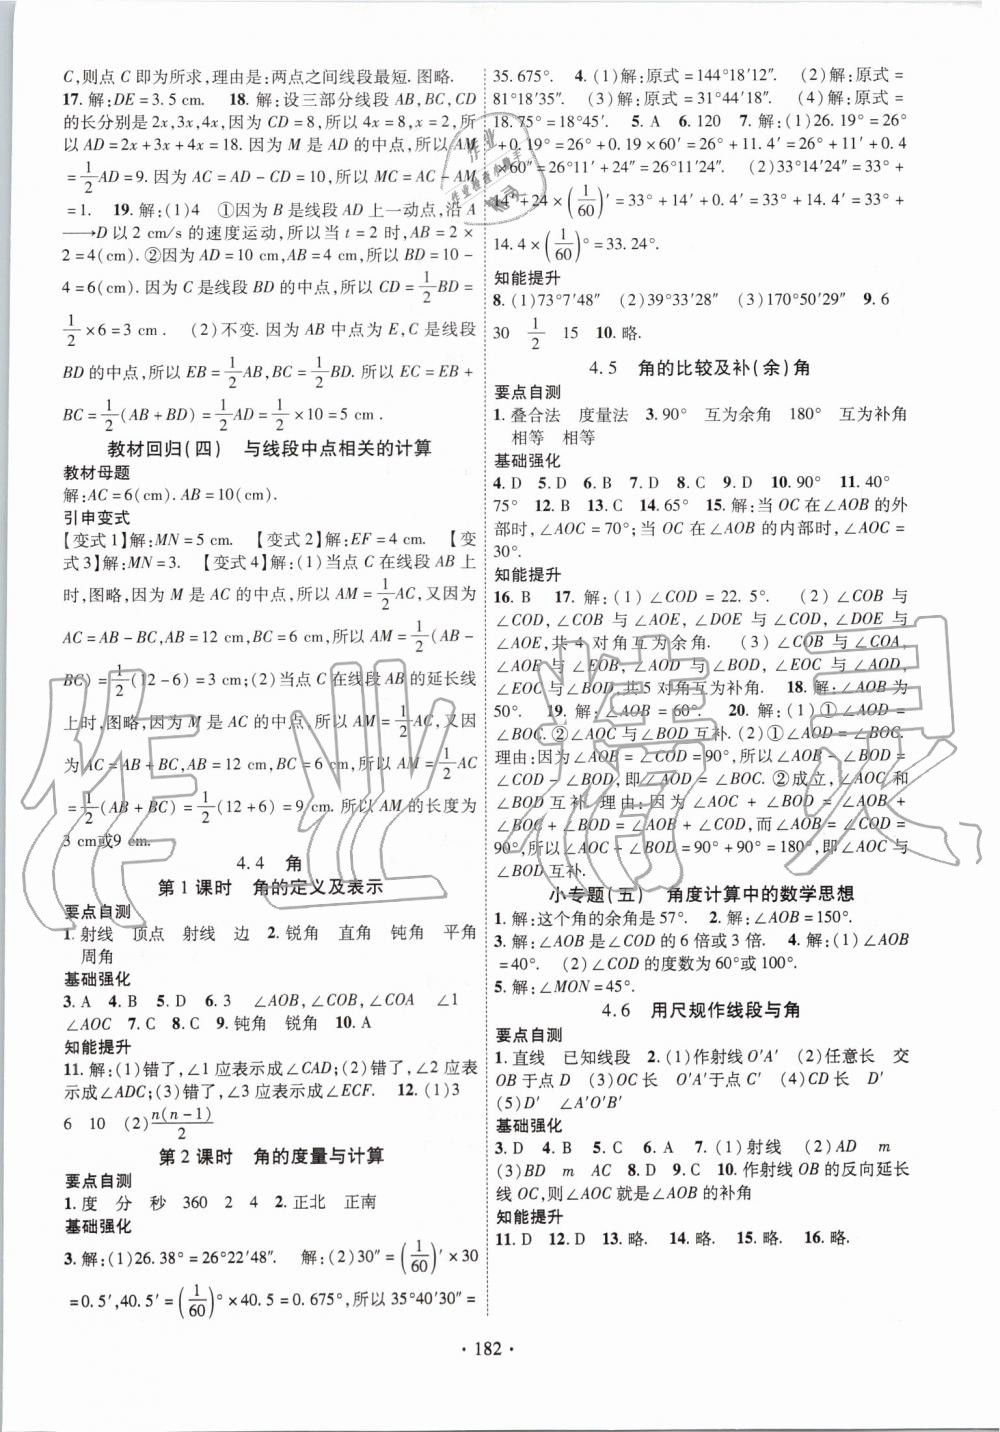 C,则点 C 即为所求,理由是:两点之间线段最短. 图略.
17. 解:DE=3.5 cm. 18. 解:设三部分线段 AB,BC,CD
的长分别是 2x,3x,4x,因为 CD=8,所以 4x=8,x=2,所
以 AD=2x+3x+4x=18. 因为 M 是 AD 的中点,所以 MD=
1/2AD=9. 因为 AC=AD-CD=10,所以 MC=AC-AM
=1. 19. 解:(1)4 ①因为 B 是线段 AD 上一动点,沿 A
→D 以 2 cm/s 的速度运动,所以当 t=2 时,AB=2×
2=4(cm). ②因为 AD=10 cm,AB=4 cm,所以 BD=10-
4=6(cm). 因为 C 是线段 BD 的中点,所以 CD=1/2BD=
1/2×6=3 cm. (2)不变. 因为 AB 中点为 E,C 是线段
BD 的中点,所以 EB=1/2AB,BC=1/2BD. 所以 EC=EB+
BC=1/2(AB+BD)=1/2AD=1/2×10=5 cm.
教材回归(四) 与线段中点相关的计算
教材母题
解:AC=6(cm). AB=10(cm).
引申变式
【变式 1】解:MN=5 cm. 【变式 2】解:EF=4 cm. 【变
式 3】解:MN=3. 【变式 4】解:(1)当点 C 在线段 AB 上
时,图略,因为 M 是 AC 的中点,所以 AM=1/2AC,又因为
AC=AB-BC,AB=12 cm,BC=6 cm,所以 AM=1/2(AB-
BC)=1/2(12-6)=3 cm;(2)当点 C 在线段 AB 的延长线
上时,图略,因为 M 是 AC 的中点,所以 AM=1/2AC,又因
为 AC=AB+BC,AB=12 cm,BC=6 cm,所以 AM=1/2AC
=1/2(AB+BC)=1/2(12+6)=9 cm. 所以 AM 的长度为
3 cm或9 cm.
4.4 角
第 1 课时 角的定义及表示
要点自测
1. 射线 顶点 射线 边 2. 锐角 直角 钝角 平角
周角
基础强化
3. A 4. B 5. D 6. 3 ∠AOB,∠COB,∠COA ∠1
∠AOC 7. C 8. C 9. 钝角 锐角 10. A
知能提升
11. 解:(1)错了,∠1 应表示成∠CAD;(2)错了,∠2 应表
示成∠ADC;(3)错了,∠3 应表示成∠ECF. 12. (1)3
6 10 (2)n(n-1)/2
第 2 课时 角的度量与计算
要点自测
1. 度 分 秒 360 2 4 2. 正北 正南
基础强化
3. 解:(1)26.38°=26°22′48″. 解:(2)30″=(1/60)′×30
=0.5′,40.5′=(1/60)°×40.5=0.675°,所以 35°40′30″=
35.675°. 4. (1)解:原式=144°18′12″. (2)解:原式=
81°18′35″. (3)解:原式=31°44′50″. (4)解:原式=
18.75°=18°45′. 5. A 6. 120 7. 解:(1)26.19°=26°
+0.19°=26°+0.19×60′=26°+11.4′=26°+11′+0.4
×60″=26°11′+24″=26°11′24″. (2)33°14′24″=33°+
14′+24×(1/60)′=33°+14′+0.4′=33°+14.4′=33°+
14.4×(1/60)°=33.24°.
知能提升
8. (1)73°7′48″ (2)39°33′28″ (3)170°50′29″ 9. 6
30 1/2 15 10. 略.
4.5 角的比较及补(余)角
要点自测
1. 叠合法 度量法 3. 90° 互为余角 180° 互为补角
相等 相等
基础强化
4. D 5. D 6. B 7. D 8. C 9. D 10. 90° 11. 40°
75° 12. B 13. C 14. 65° 15. 解:当 OC 在∠AOB 的外
部时,∠AOC=70°;当 OC 在∠AOB 的内部时,∠AOC=
30°.
知能提升
16. B 17. 解:(1)∠COD=22.5°. (2)∠COB 与
∠COD,∠COB 与∠AOE,∠DOE 与∠COD,∠DOE 与
∠AOE,共 4 对角互为余角. (3)∠COB 与∠COA,
∠AOE 与∠EOB,∠AOD 与∠BOD,∠EOC 与∠AOD,
∠EOC 与∠BOD,共 5 对角互为补角. 18. 解:∠AOB 为
50°. 19. 解:∠AOB=60°. 20. 解:(1)①∠AOD=
∠BOC. ②∠AOC 与∠BOD 互补. (2)①∠AOD=∠BOC.
理由:因为∠AOB=∠COD=90°,所以∠AOB-∠BOD=
∠COD-∠BOD,即∠AOD=∠BOC. ②成立,∠AOC 和
∠BOD 互补. 理由:因为∠AOC=∠AOB+
∠BOC,∠BOD+∠BOC=∠COD,而∠AOB=∠COD=
90°,所以∠AOC+∠BOD=90°+90°=180°,即∠AOC 与
∠BOD 互补.
小专题(五) 角度计算中的数学思想
1. 解:这个角的余角是 57°. 2. 解:∠AOB=150°.
3. 解:∠AOB 是∠COD 的 6 倍或 3 倍. 4. 解:(1)∠AOB
=40°. (2)∠COD 的度数为 60°或 100°.
5. 解:∠MON=45°.
4.6 用尺规作线段与角
要点自测
1. 直线 已知线段 2. (1)作射线 O′A′ (2)任意长 交
OB 于点 D (3)OC 长 O′A′于点 C′ (4)CD 长 D′
(5)D′ ∠A′O′B′
基础强化
3. D 4. B 5. C 6. A 7. (1)射线 (2)AD m
(3)BD m AC 8. D 9. C 10. 作射线 OB 的反向延长
线 OC,则∠AOC 就是∠AOB 的补角
知能提升
11. D 12. D 13. 略. 14. 略. 15. 略. 16. 略.
· 182 ·
作业精灵